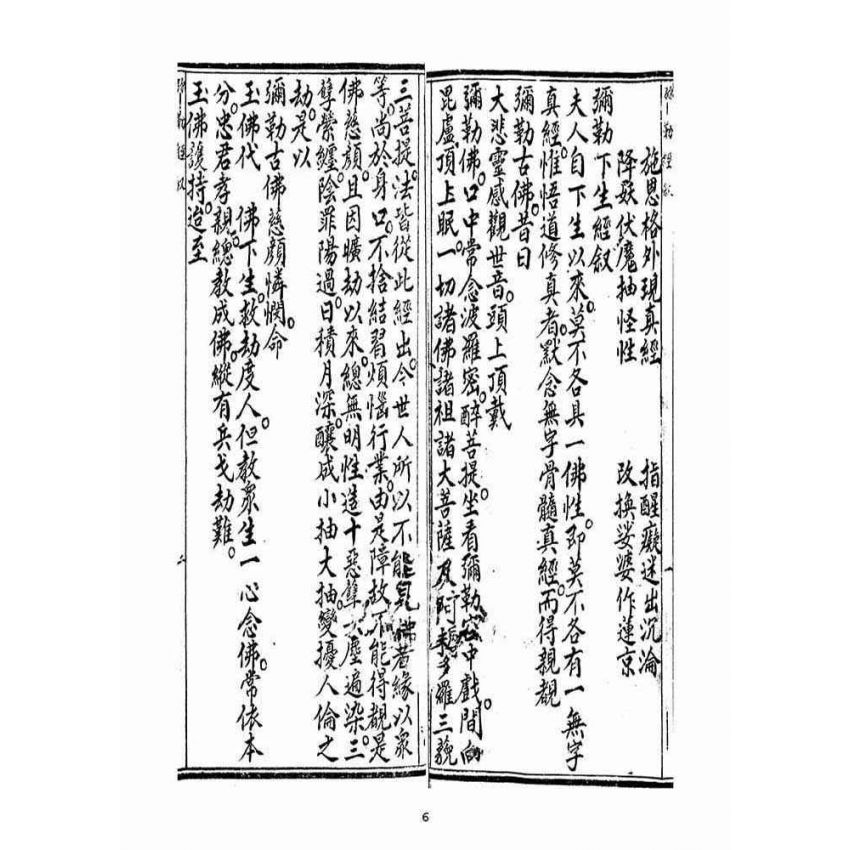 施恩格外現真經　指醒癡迷出沉淪
降妖伏魔抽怪性　改換娑婆作蓮京
彌勒下生經叙
夫人自下生以來。莫不各具一佛性。即莫不各有一無字
真經。惟悟道修真者。默念無字骨髓真經。而得親覩
彌勒古佛。昔日
大悲靈感觀世音。頭上頂戴
彌勒佛。口中常念波羅密。醉菩提。坐看彌勒宮中戲。間向
毘盧頂上眠。一切諸佛諸祖諸大菩薩及阿耨多羅三藐
三菩提。法皆從此經出。今世人所以不能見佛者。緣以衆
等。尚於身口。不捨結習煩惱行業。由是障故。不能得覩是
佛慈顔。且因曠劫以來。總無明性。造十惡孽。六塵遍染。三
孽縈纏。陰罪陽過。日積月深。釀成小抽大抽。變擾人倫之
劫。是以
彌勒古佛慈顔憐憫。命
玉佛代　佛下生。救劫度人。但教衆生一心念佛。常依本
分。忠君孝親。總教成佛。縱有兵戈劫難。
玉佛護持。迨至
二
6